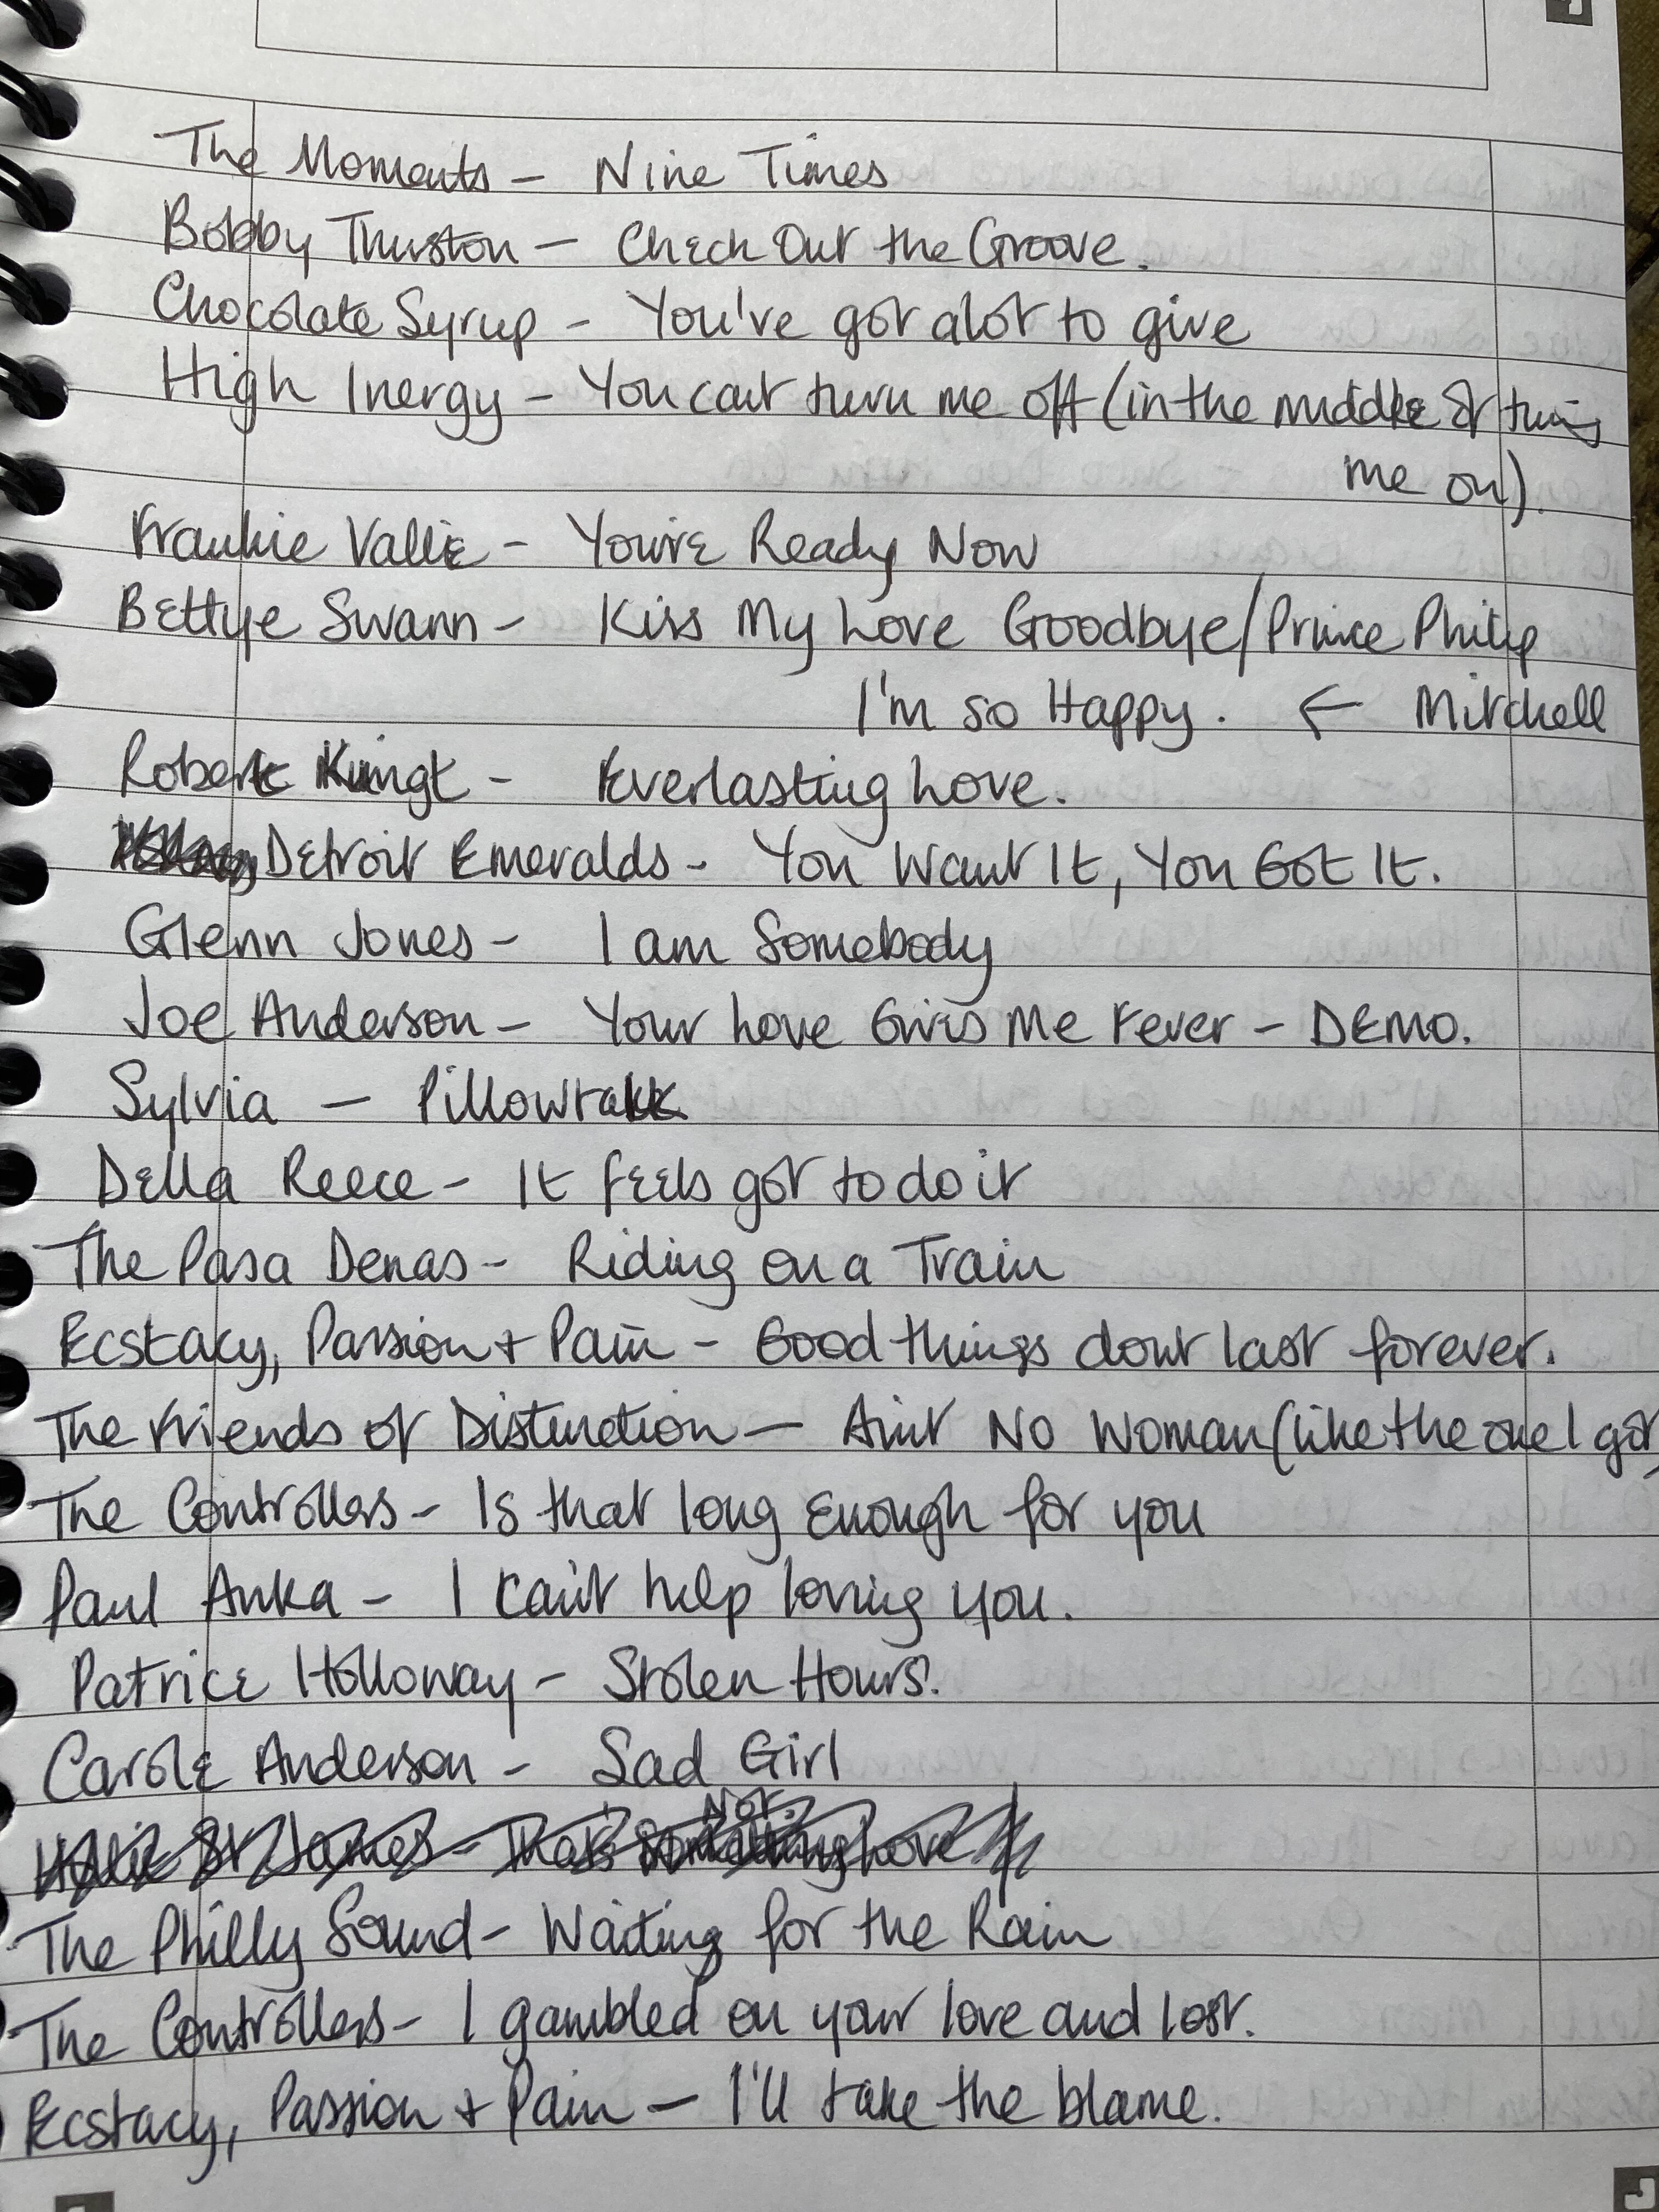 The Moments - Nine Times
Bobby Thurston - Check Out the Groove.
Chocolate Syrup - You've got alot to give
High Inergy - You cant turn me off (in the middle of turning
me on).
Frankie Vallie - You're Ready Now
Bettye Swann - Kiss My Love Goodbye/Prince Philip
I'm so Happy. ← Mitchell
Robert - Everlasting Love.
Detroit Emeralds - You Want It, You Got It.
Glenn Jones - I am Somebody
Joe Anderson - Your Love Gives Me Fever - DEMO.
Sylvia - Pillowtalk
Della Reece - It feels got to do it
The Pasa Denas - Riding on a Train
Ecstacy, Passion + Pain - Good things dont last forever.
The Friends of Distinction - Ain't No Woman (like the one I got)
The Controllers - Is that long Enough for you
Paul Anka - I can't help loving you.
Patrice Holloway - Stolen Hours.
Carole Anderson - Sad Girl
The Philly Sound - Waiting for the Rain
The Controllers - I gambled on your love and lost.
Ecstacy, Passion + Pain - I'll take the blame.